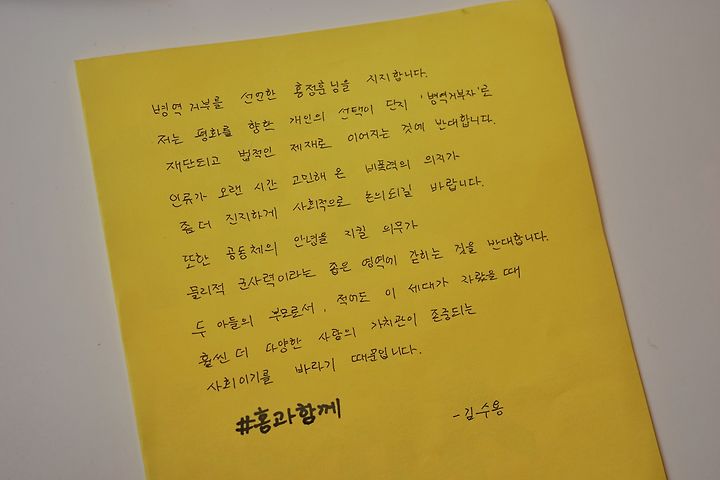 병역거부를 선언한 홍정훈님을 지지합니다.
저는 평화를 향한 개인의 선택이 단지 '병역거부자'로
재단되고 법적인 제재로 이어지는 것에 반대합니다.
인류가 오랜 시간 고민해 온 비폭력의 의지가
좀 더 진지하게 사회적으로 논의되길 바랍니다.
또한 공동체의 안녕을 지킬 의무가
물리적 군사력이라는 좁은 영역에 갇히는 것을 반대합니다.
두 아들의 부모로서, 적어도 이 세대가 자랐을 때
훨씬 더 다양한 사람의 가치관이 존중되는
사회이기를 바라기 때문입니다.
#홍과함께
-김수용